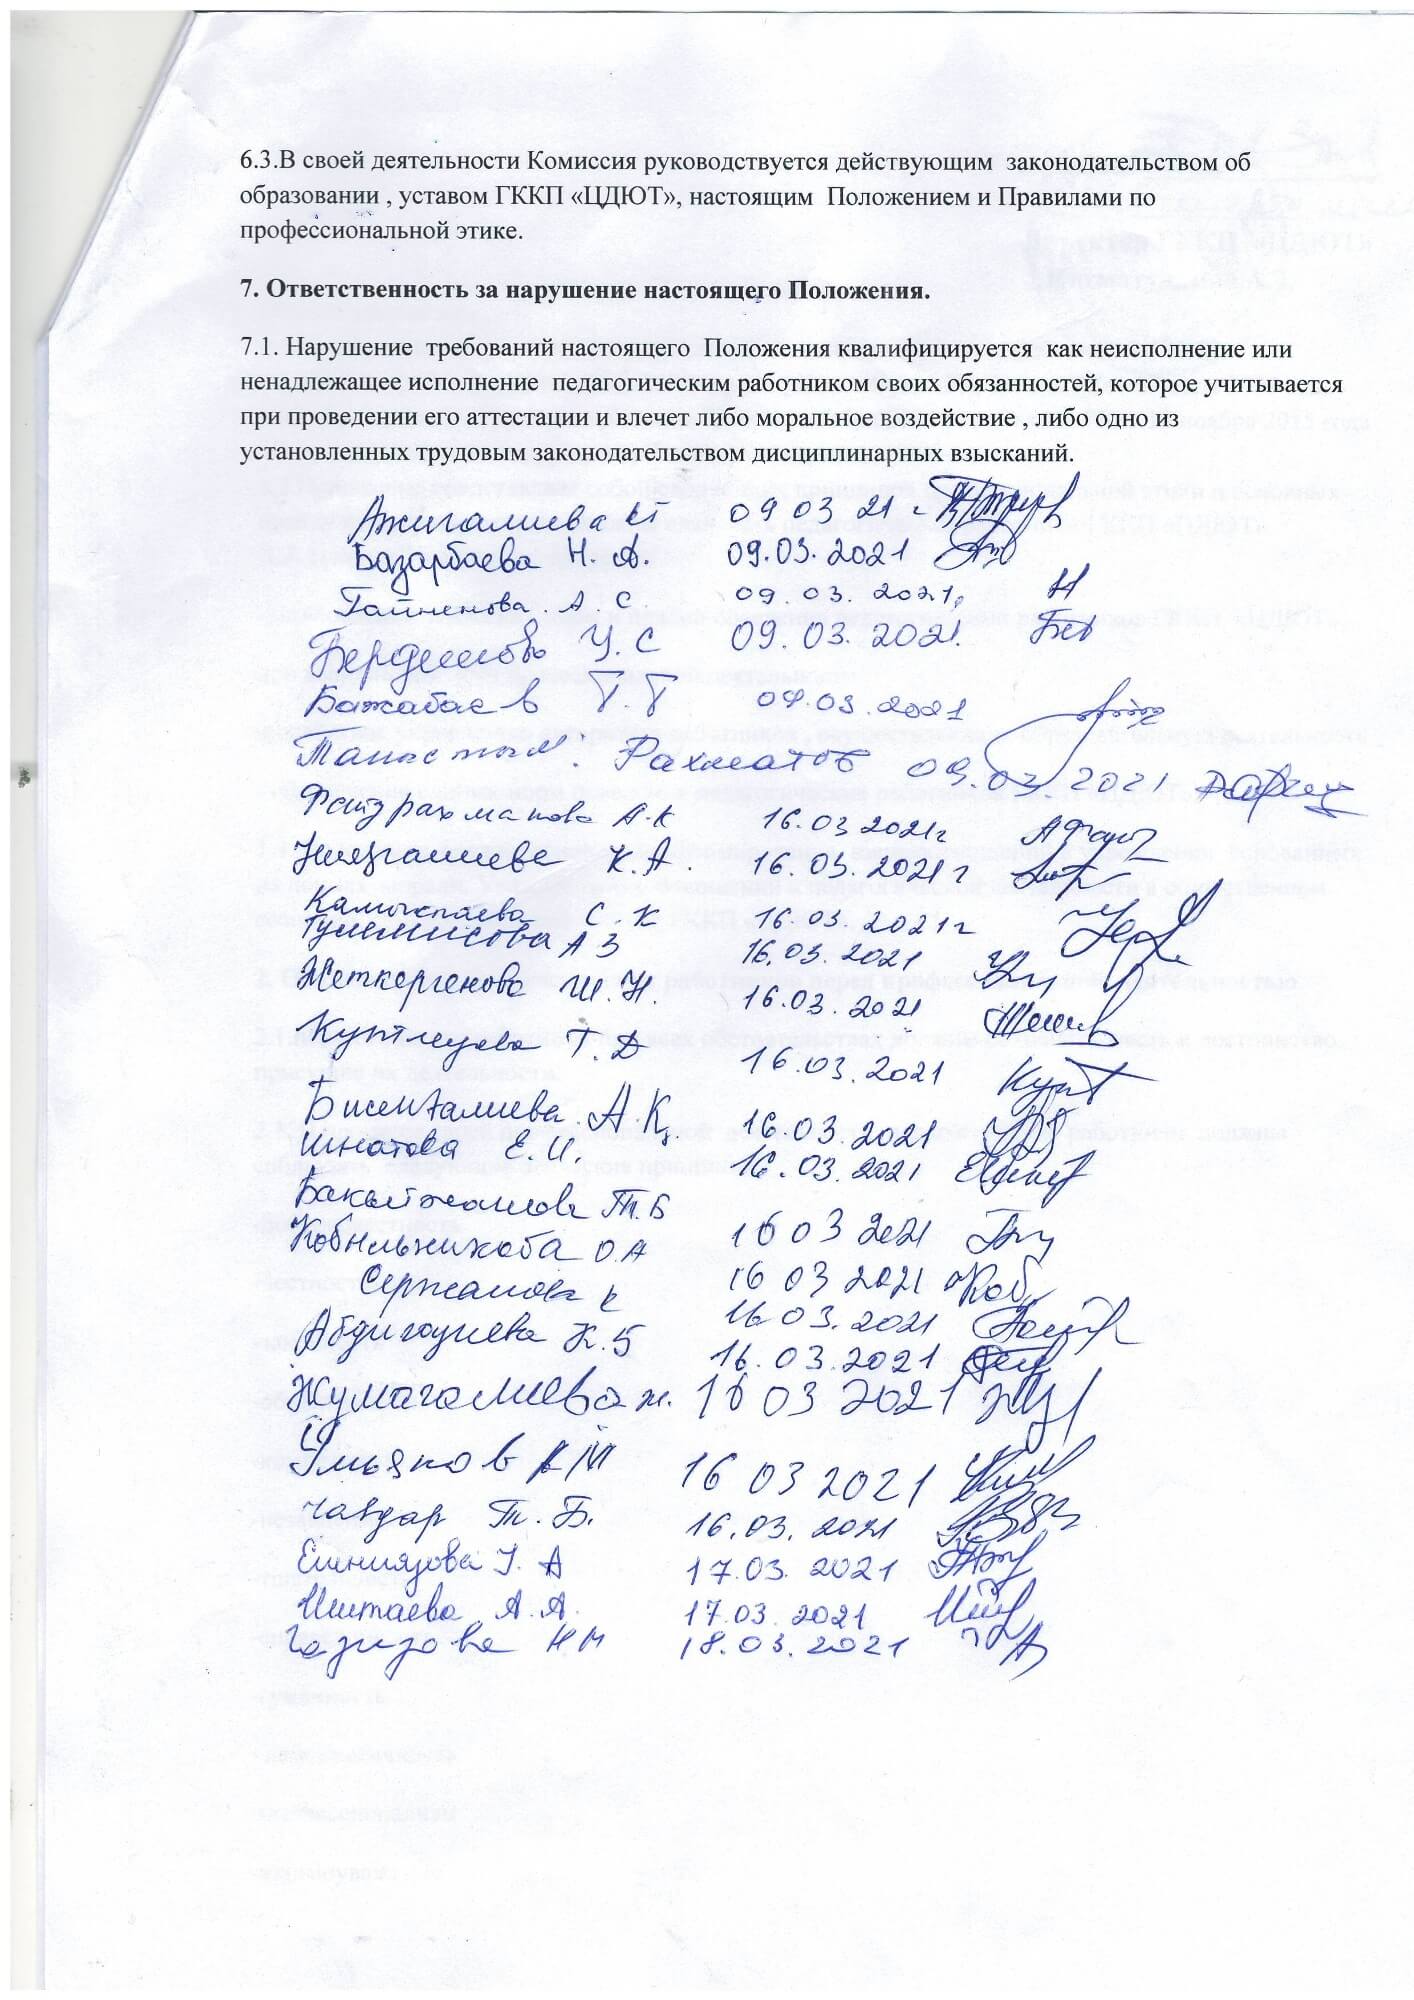 6.3.В своей деятельности Комиссия руководствуется действующим законодательством об
образовании , уставом ГККП «ЦДЮТ», настоящим Положением и Правилами по
профессиональной этике.
7. Ответственность за нарушение настоящего Положения.
7.1. Нарушение требований настоящего Положения квалифицируется как неисполнение или
ненадлежащее исполнение педагогическим работником своих обязанностей, которое учитывается
при проведении его аттестации и влечет либо моральное воздействие , либо одно из
установленных трудовым законодательством дисциплинарных взысканий.
Ажигалиева 09 03 21 г
Базарбаева Н. А. 09.03.2021
А. С 09 03. 2021
У. С 09. 03. 2021.
Т. Т 09.03.2021
Рахматов 09.03 2021
Файзрахманова А.К 16.03 2021г
Ниязгалиева К.А. 16.03.2021 г
Камыспаева С. К 16.03. 2021г
А З 16.03.2021
Жеткергенова Ш.Н. 16.03. 2021
Т. Д 16.03. 2021
Бисенгалиева А. 16.03.2021
Игнатова Е. И. 16.03. 2021
Бакытжанова Т.Б 16 03 2021
Кобыльникова О.А 16 03 2021
Сержанова К 16.03.2021
К.Б 16.03.2021
Жумагалиева ж. 16 03 2021
16 03 2021
Чавдар Т. Б. 16.03. 2021
Ешниязова У. А 17.03. 2021
Иштаева А. А. 17.03. 2021
Газизова Н М 18.03.2021